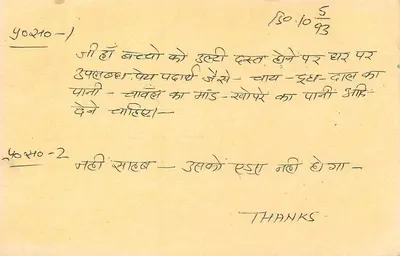 130.10 5/93
प्र०स०-1
जी हाँ बच्चो को उल्टी दस्त होने पर घर पर
उपलब्ध पेय पदार्थ जैसे- चाय- दूध- दाल का
पानी - चावल का मांड- खोपरे का पानी आदि
देने चाहिए।-
प्र०स०-2
नही साहब - उसको एड्स नही होगा-
THANKS